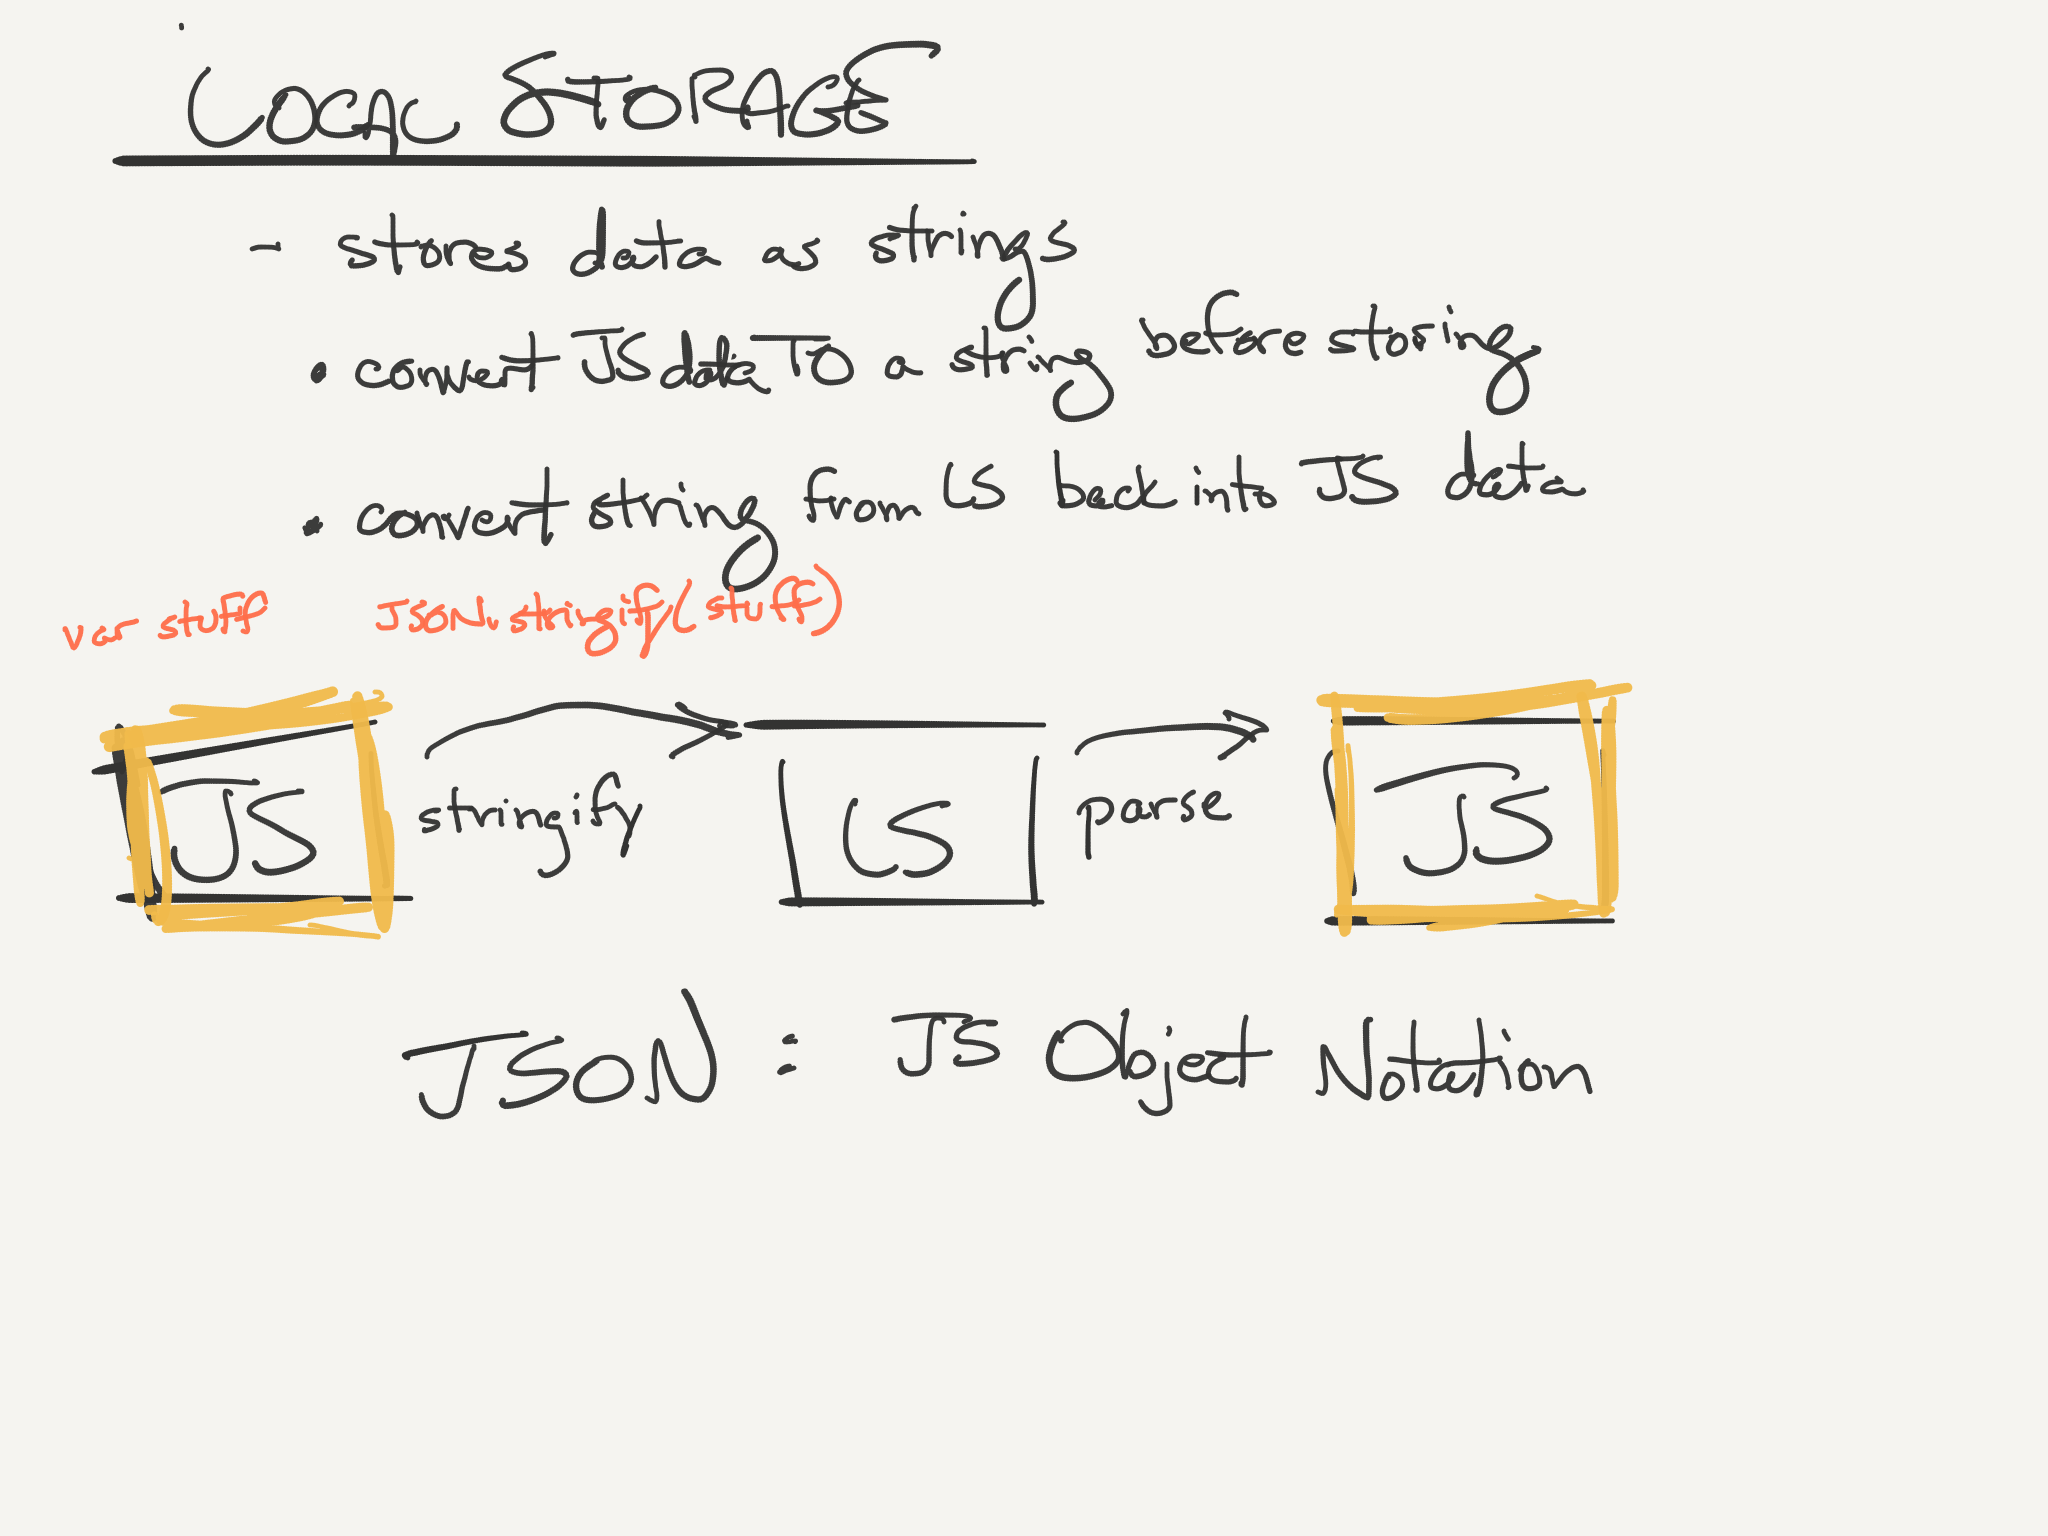 LOCAL STORAGE
- stores data as strings
• convert JS data TO a string before storing
• convert string from LS back into JS data
var stuff JSON.stringify(stuff)
JS stringify LS parse JS
JSON : JS Object Notation